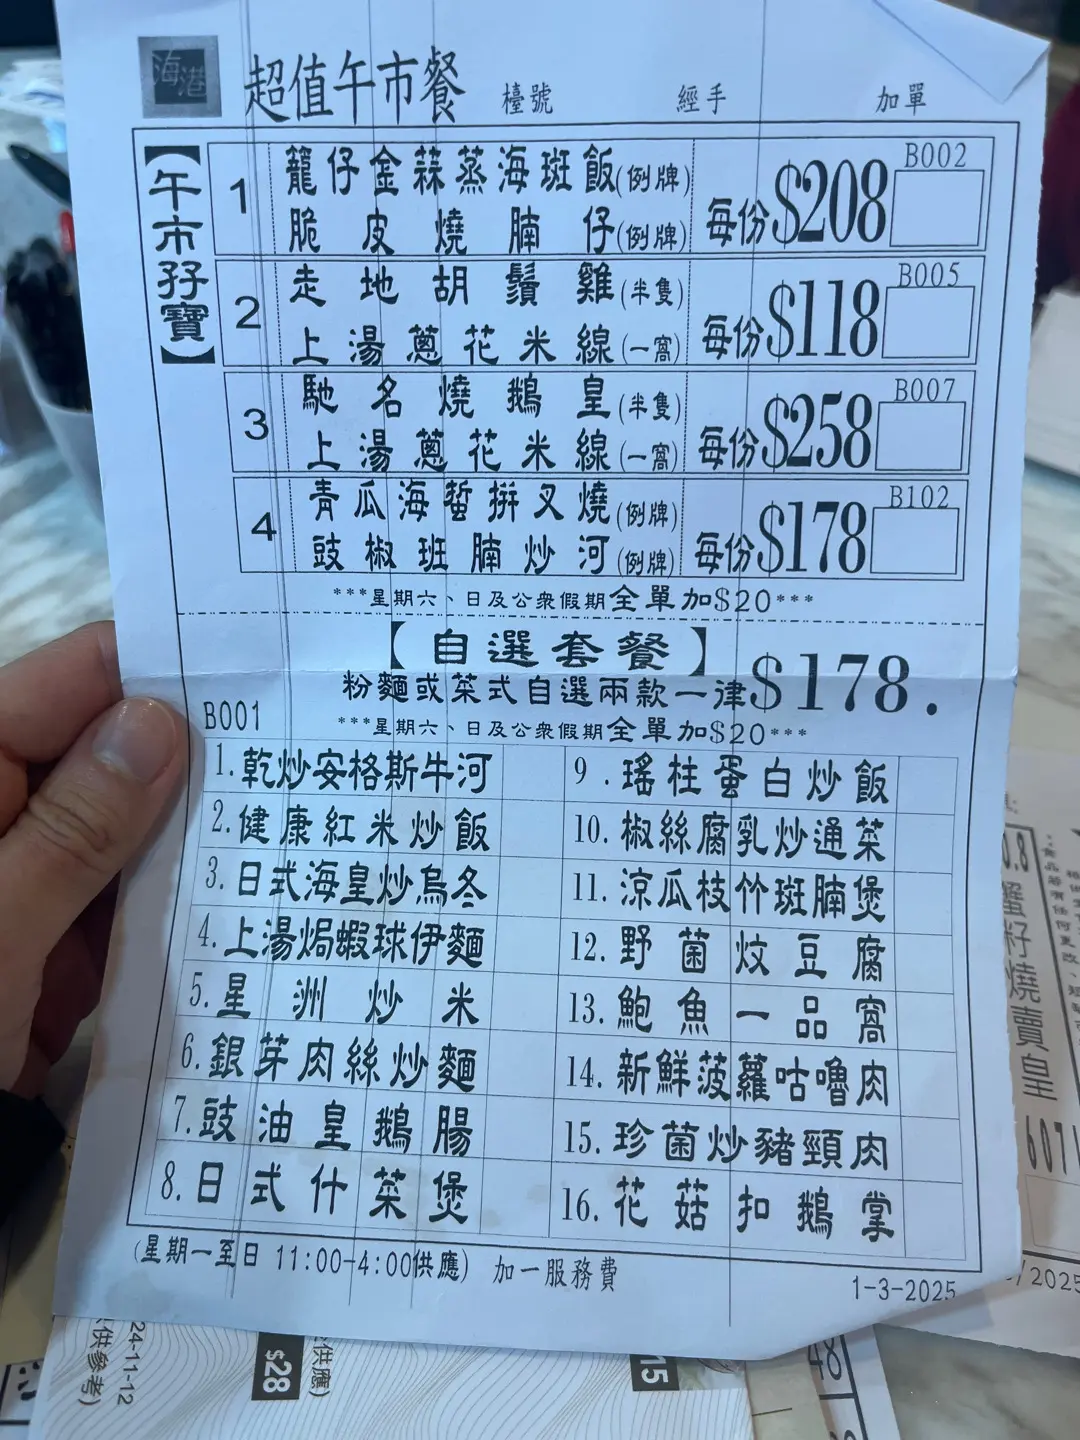 海港
超值午市餐 檯號 經手 加單
【午市孖寶】
1 籠仔金蒜蒸海斑飯(例牌) 每份$208 B002
脆皮燒腩仔(例牌)
2 走地胡鬚雞(半隻) 每份$118 B005
上湯蔥花米線(一窩)
3 馳名燒鵝皇(半隻) 每份$258 B007
上湯蔥花米線(一窩)
4 青瓜海蜇拼叉燒(例牌) 每份$178 B102
豉椒班腩炒河(例牌)
***星期六、日及公眾假期全單加$20***
【自選套餐】
粉麵或菜式自選兩款一律$178.
B001 ***星期六、日及公眾假期全單加$20***
1.乾炒安格斯牛河
2.健康紅米炒飯
3.日式海皇炒烏冬
4.上湯焗蝦球伊麵
5.星洲炒米
6.銀芽肉絲炒麵
7.豉油皇鵝腸
8.日式什菜煲
9.瑤柱蛋白炒飯
10.椒絲腐乳炒通菜
11.涼瓜枝竹斑腩煲
12.野菌炆豆腐
13.鮑魚一品窩
14.新鮮菠蘿咕嚕肉
15.珍菌炒豬頸肉
16.花菇扣鵝掌
(星期一至日 11:00-4:00供應) 加一服務費
1-3-2025
蟹籽燒賣皇
6071
/2025
24-11-12
供參考)
$28
供應)
15
48